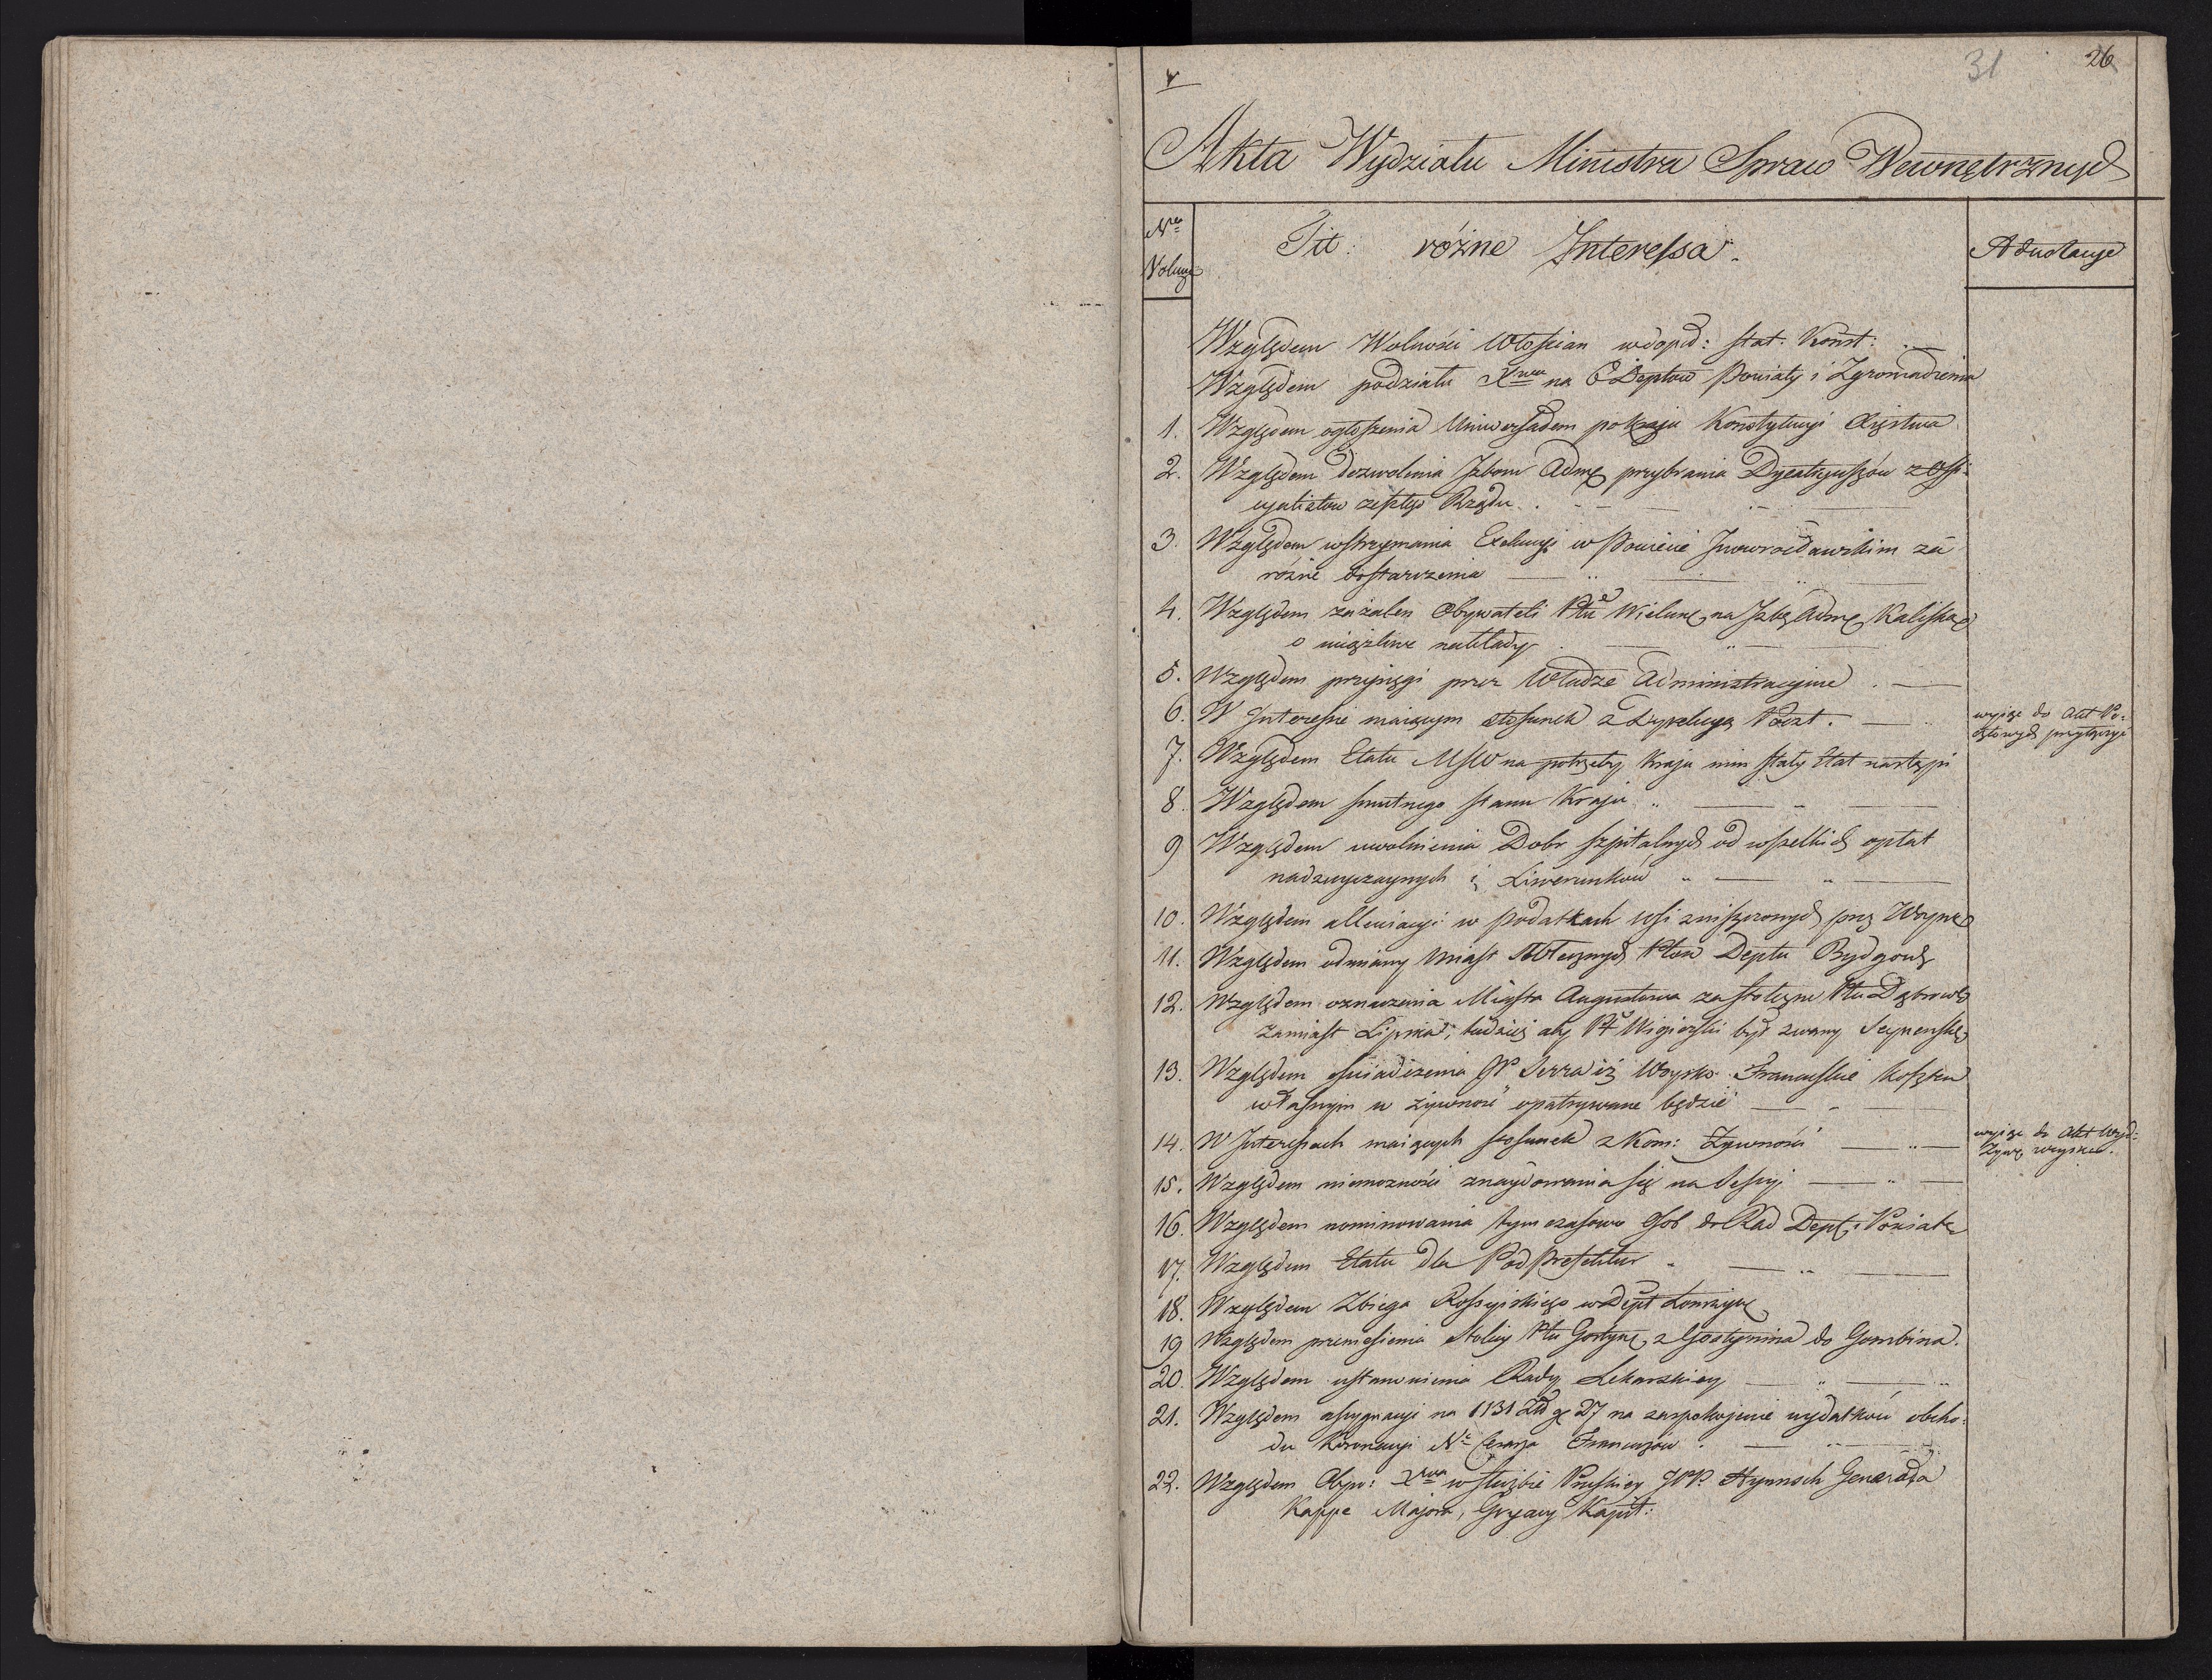 31 26
Akta Wydziału Ministra Spraw Wewnętrznych
Nro
Tit: różne Interessa.
Adnotacye
Względem Wolności Włoscian w: stat. Konst:
Względem podziału Xtwa na 6 Deptow Powiaty i Zgromadzenia
1. Względem ogłoszenia Uniwersałem po kraju Konstytucyi Xięstwa
2. Względem dozwolenia Izbom Adm przybrania Dyeataryuszów z offi-
cyalistow zeszłego Rządu
3. Względem wstrzymania Exekucyi w Powiecie Inowrocławskim za
różne dostarczenia
4. Względem zażaleń Obywateli Ptu Wieluń na Izbę Adm Kaliską
o uciążliwe nakłady
5. Względem przysięgi przez Władze Administracyjne
6. W Interesie maiącym stosunek z Dyrekcyą Poczt.
wyięte do Akt Po-
cztowych przyłączyć
7. Względem Etatu MSW na potrzeby Kraju nim stały Etat nastąpi
8. Względem smutnego stanu Kraju
9 Względem uwolnienia Dobr szpitalnych od wszelkich opłat
nadzwyczaynych i Liwerunkow
10. Względem allewiacyi w podatkach wsi zniszczonych prz Woynę
11. Względem odmiany Miast Stołecznych Ptow Deptu Bydgoś
12. Względem oznaczenia Miasta Augustowa za stołeczne Ptu Dąbrows
zamiast Lipska, tudzież aby Pt Wigierski był zwany Seynenski
13. Względem oświadczenia JW Serra iż Woysko Francuskie kosztem
własnym w żywność opatrywane będzie
14. W Interessach maiących stosunek z Kom: Żywności
wyięte do Akt Wyd:
Żyw woyska.
15. Względem niemożności znaydowania się na Sessyi
16. Względem nominowania tymczasowo Osob do Rad Dept i Powiat
17. Względem Etatu dla Podprefektur
18. Względem Zbiega Rossyiskiego w Dept Łomżyń
19 Względem przeniesienia stolicy Ptu Gostyń z Gostynina do Gombina.
20. Względem ustanowienia Rady Lekarskiey
21. Względem assygnacyi na 1131 Zł g 27 na zaspokojenie wydatków obcho-
du Koronacyi N. Cesarza Francuzów
22. Względem Obyw: Xtwa w służbie Pruskiey JPP. Generała
Kappe Majora, Kapit: